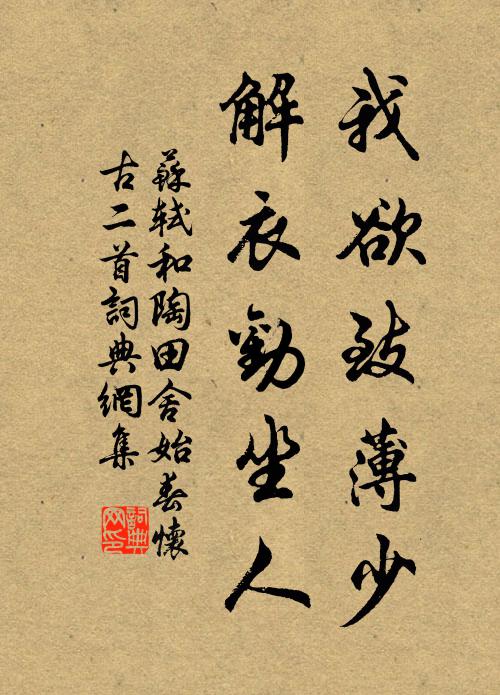 我欲致薄少
解衣勸坐人
蘇軾和陶田舍始春懷
古二首詞典網集
詞典
网印